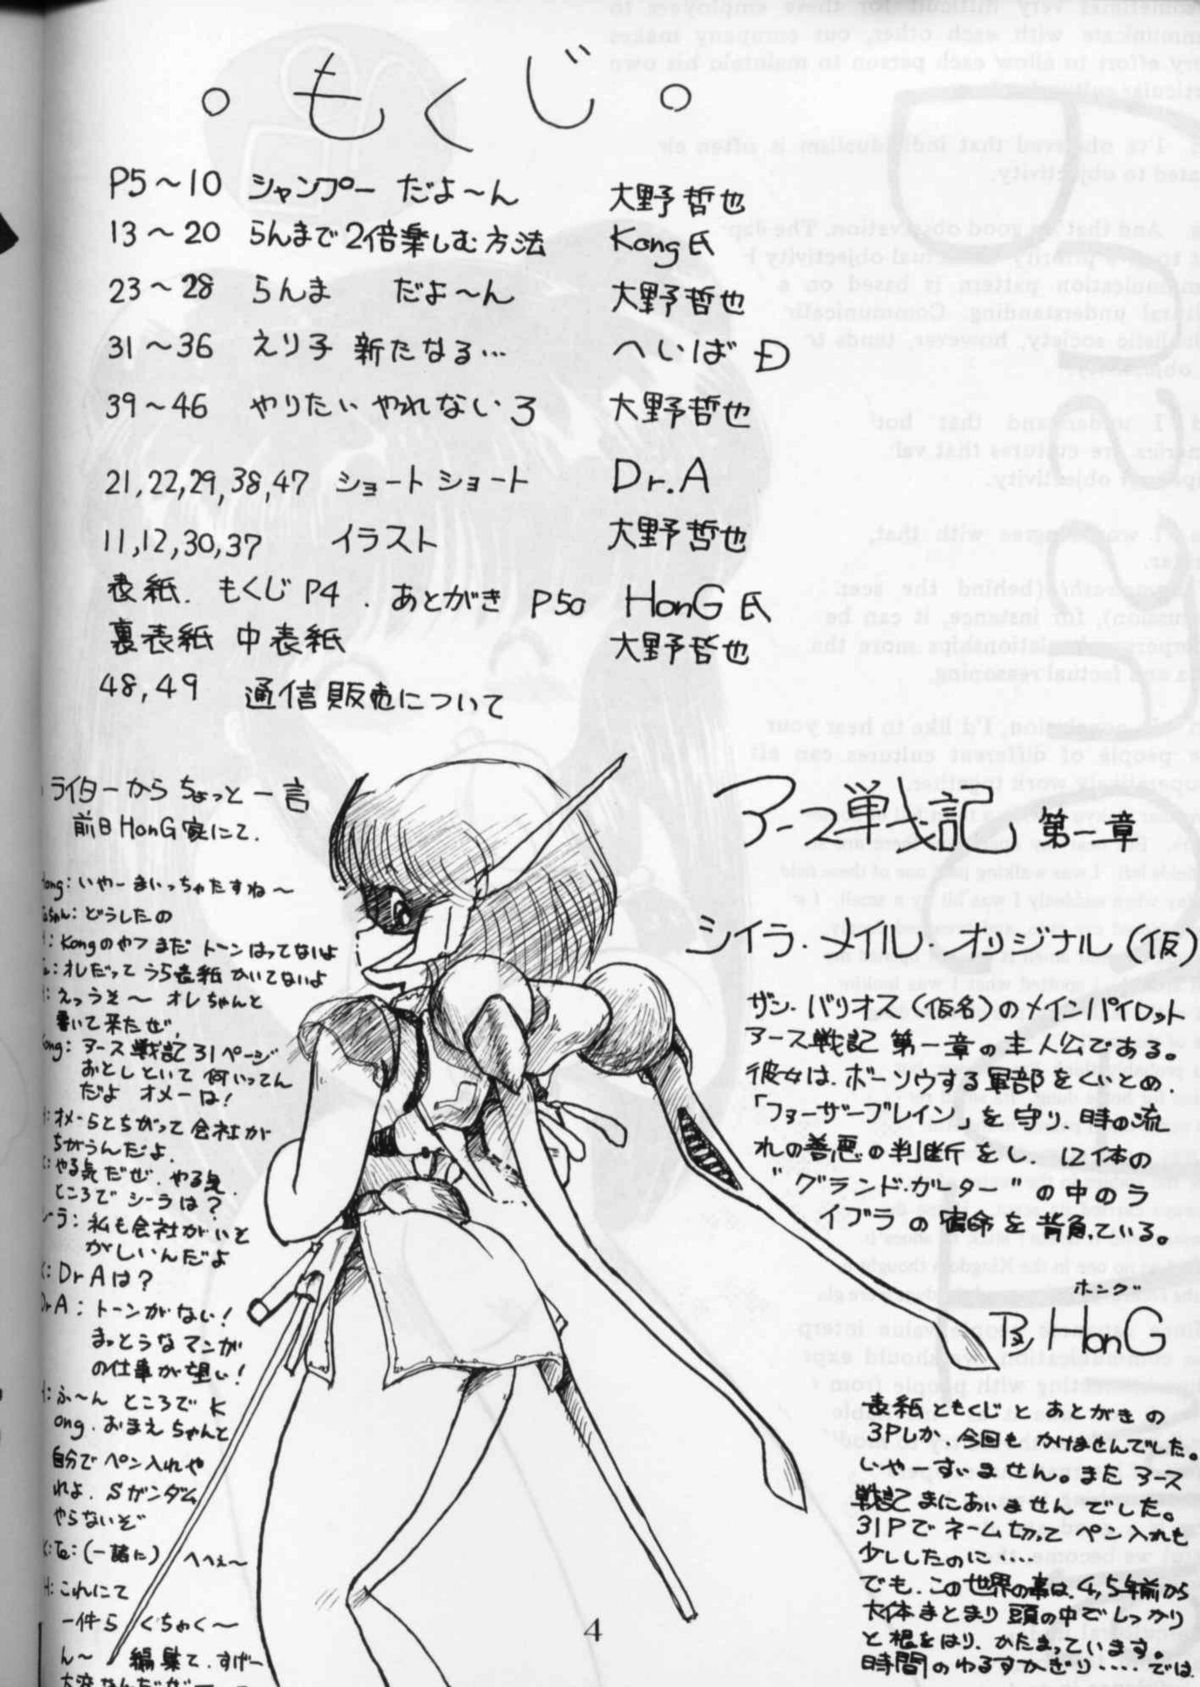 。もくじ。
P5〜10 シャンプー だよ〜ん 大野哲也
13〜20 らんまで2倍楽しむ方法 Kong氏
23〜28 らんま だよ〜ん 大野哲也
31〜36 えり子 新たなる… へいばĐ
39〜46 やりたい やれない3 大野哲也
21,22,29,38,47 ショートショート Dr.A
11,12,30,37 イラスト 大野哲也
表紙. もくじP4. あとがき P50 HonG氏
裏表紙 中表紙 大野哲也
48,49 通信販売について
ライターからちょっと一言
前日HonG家にて.
Hong:いやーまいっちゃたすね〜
どうしたの
Kongのやつまだトーンはってないよ
オレだってうら表紙かいてないよ
えっうそ〜 オレちゃんと
書いて来たぜ.
Kong:アース戦記31ページ
おとしといて何いってん
だよ オメーは!
オメーらとちがって会社が
ちがうんだよ.
やる気だぜ.やる気.
ところでシーラは?
シーラ:私も会社がいと
がしいんだよ
K:DrAは?
DrA:トーンがない!
まっとうなマンガ
の仕事が望い!
H:ふ〜んところでK
ong.おまえちゃんと
自分でペン入れや
れよ.Sガンダム
やらないぞ
K:Te:(一諸に) へへぇ〜
H:これにて
一件ら くちゃく〜
ん〜 編集て.すげー
アース戦記 第一章
シイラ・メイル・オリジナル(仮)
ザシ・バリオス(仮名)のメインパイロット
アース戦記 第一章の主人公である。
彼女は.ボーソウする軍部をくいとめ.
「フォーザーブレイン」を守り時の流
れの善悪の判断をし.12体の
"グランド・ガーター"の中のラ
イブラの宿命を背負ている。
ホング
HonG
表紙ともくじとあとがきの
3Pしか.今回もかけませんでした。
いやーすいません。またアース
戦記まにあいませんでした。
31Pでネーム切ってペン入れも
少ししたのに‥‥
でも.この世界の事は.4,5年前から
大体まとまり頭の中でしっかり
と根をはり.かたまっています。
時間のゆるすかぎり‥‥では
4